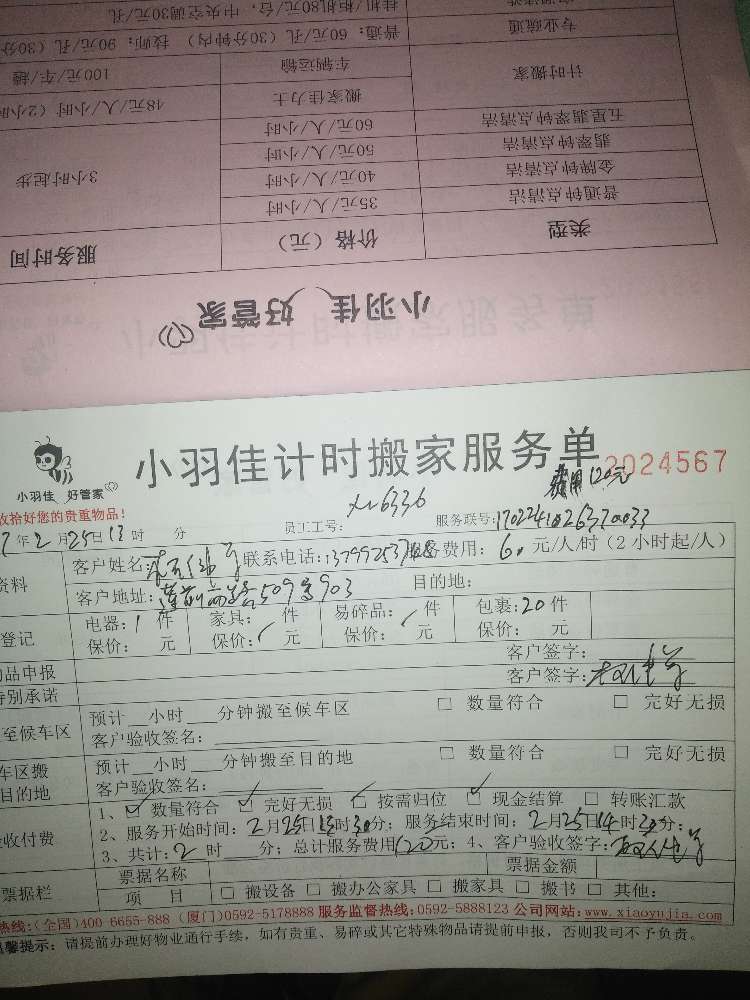 挂机/柜机80元/台，中央空调30元/孔
专业疏通 普通：60元/孔（30分钟内） 技师：90元/孔（30分
计时搬家 车辆运输 100元/车/趟
搬家佳力士 48元/人/小时（2小时
五星翡翠钟点清洁 60元/人/小时
翡翠钟点清洁 50元/人/小时
金牌钟点清洁 40元/人/小时 3小时起步
普通钟点清洁 35元/人/小时
类型 价格（元） 服务时间
小羽佳 好管家
小羽佳 好管家
小羽佳计时搬家服务单
2024567
费用120元
收拾好您的贵重物品！
员工工号： 6336
服务联号：
7年2月25日13时 分
资料 客户姓名： 联系电话： 服务费用：60元/人/时（2小时起/人）
客户地址： 509 903 目的地：
登记 电器：1件 家具： 件 易碎品： 件 包裹：20件
保价： 元 保价： 元 保价： 元 保价： 元
品申报 客户签字：
特别承诺 客户签字：
至候车区 预计__小时___分钟搬至候车区 □ 数量符合 □ 完好无损
客户验收签名：
车区搬 预计__小时___分钟搬至目的地 □ 数量符合 □ 完好无损
目的地 客户验收签名：
验收付费 1、☑ 数量符合 ☑ 完好无损 ☑ 按需归位 ☑ 现金结算 □ 转账汇款
2、服务开始时间：2月25日 时30分；服务结束时间：2月25日14时30分；
3、共计：2时___分；总计服务费用120元；4、客户验收签字：
票据栏 票据名称 票据金额
项 目 □ 搬设备 □ 搬办公家具 □ 搬家具 □ 搬书 □ 其他：
热线：（全国）400-6655-888（厦门）0592-5178888 服务监督热线：0592-5888123 公司网站：www.xiaoyujia.com
温馨提示：请提前办理好物业通行手续，如有贵重、易碎或其它特殊物品请提前申报，否则我司不予负责。